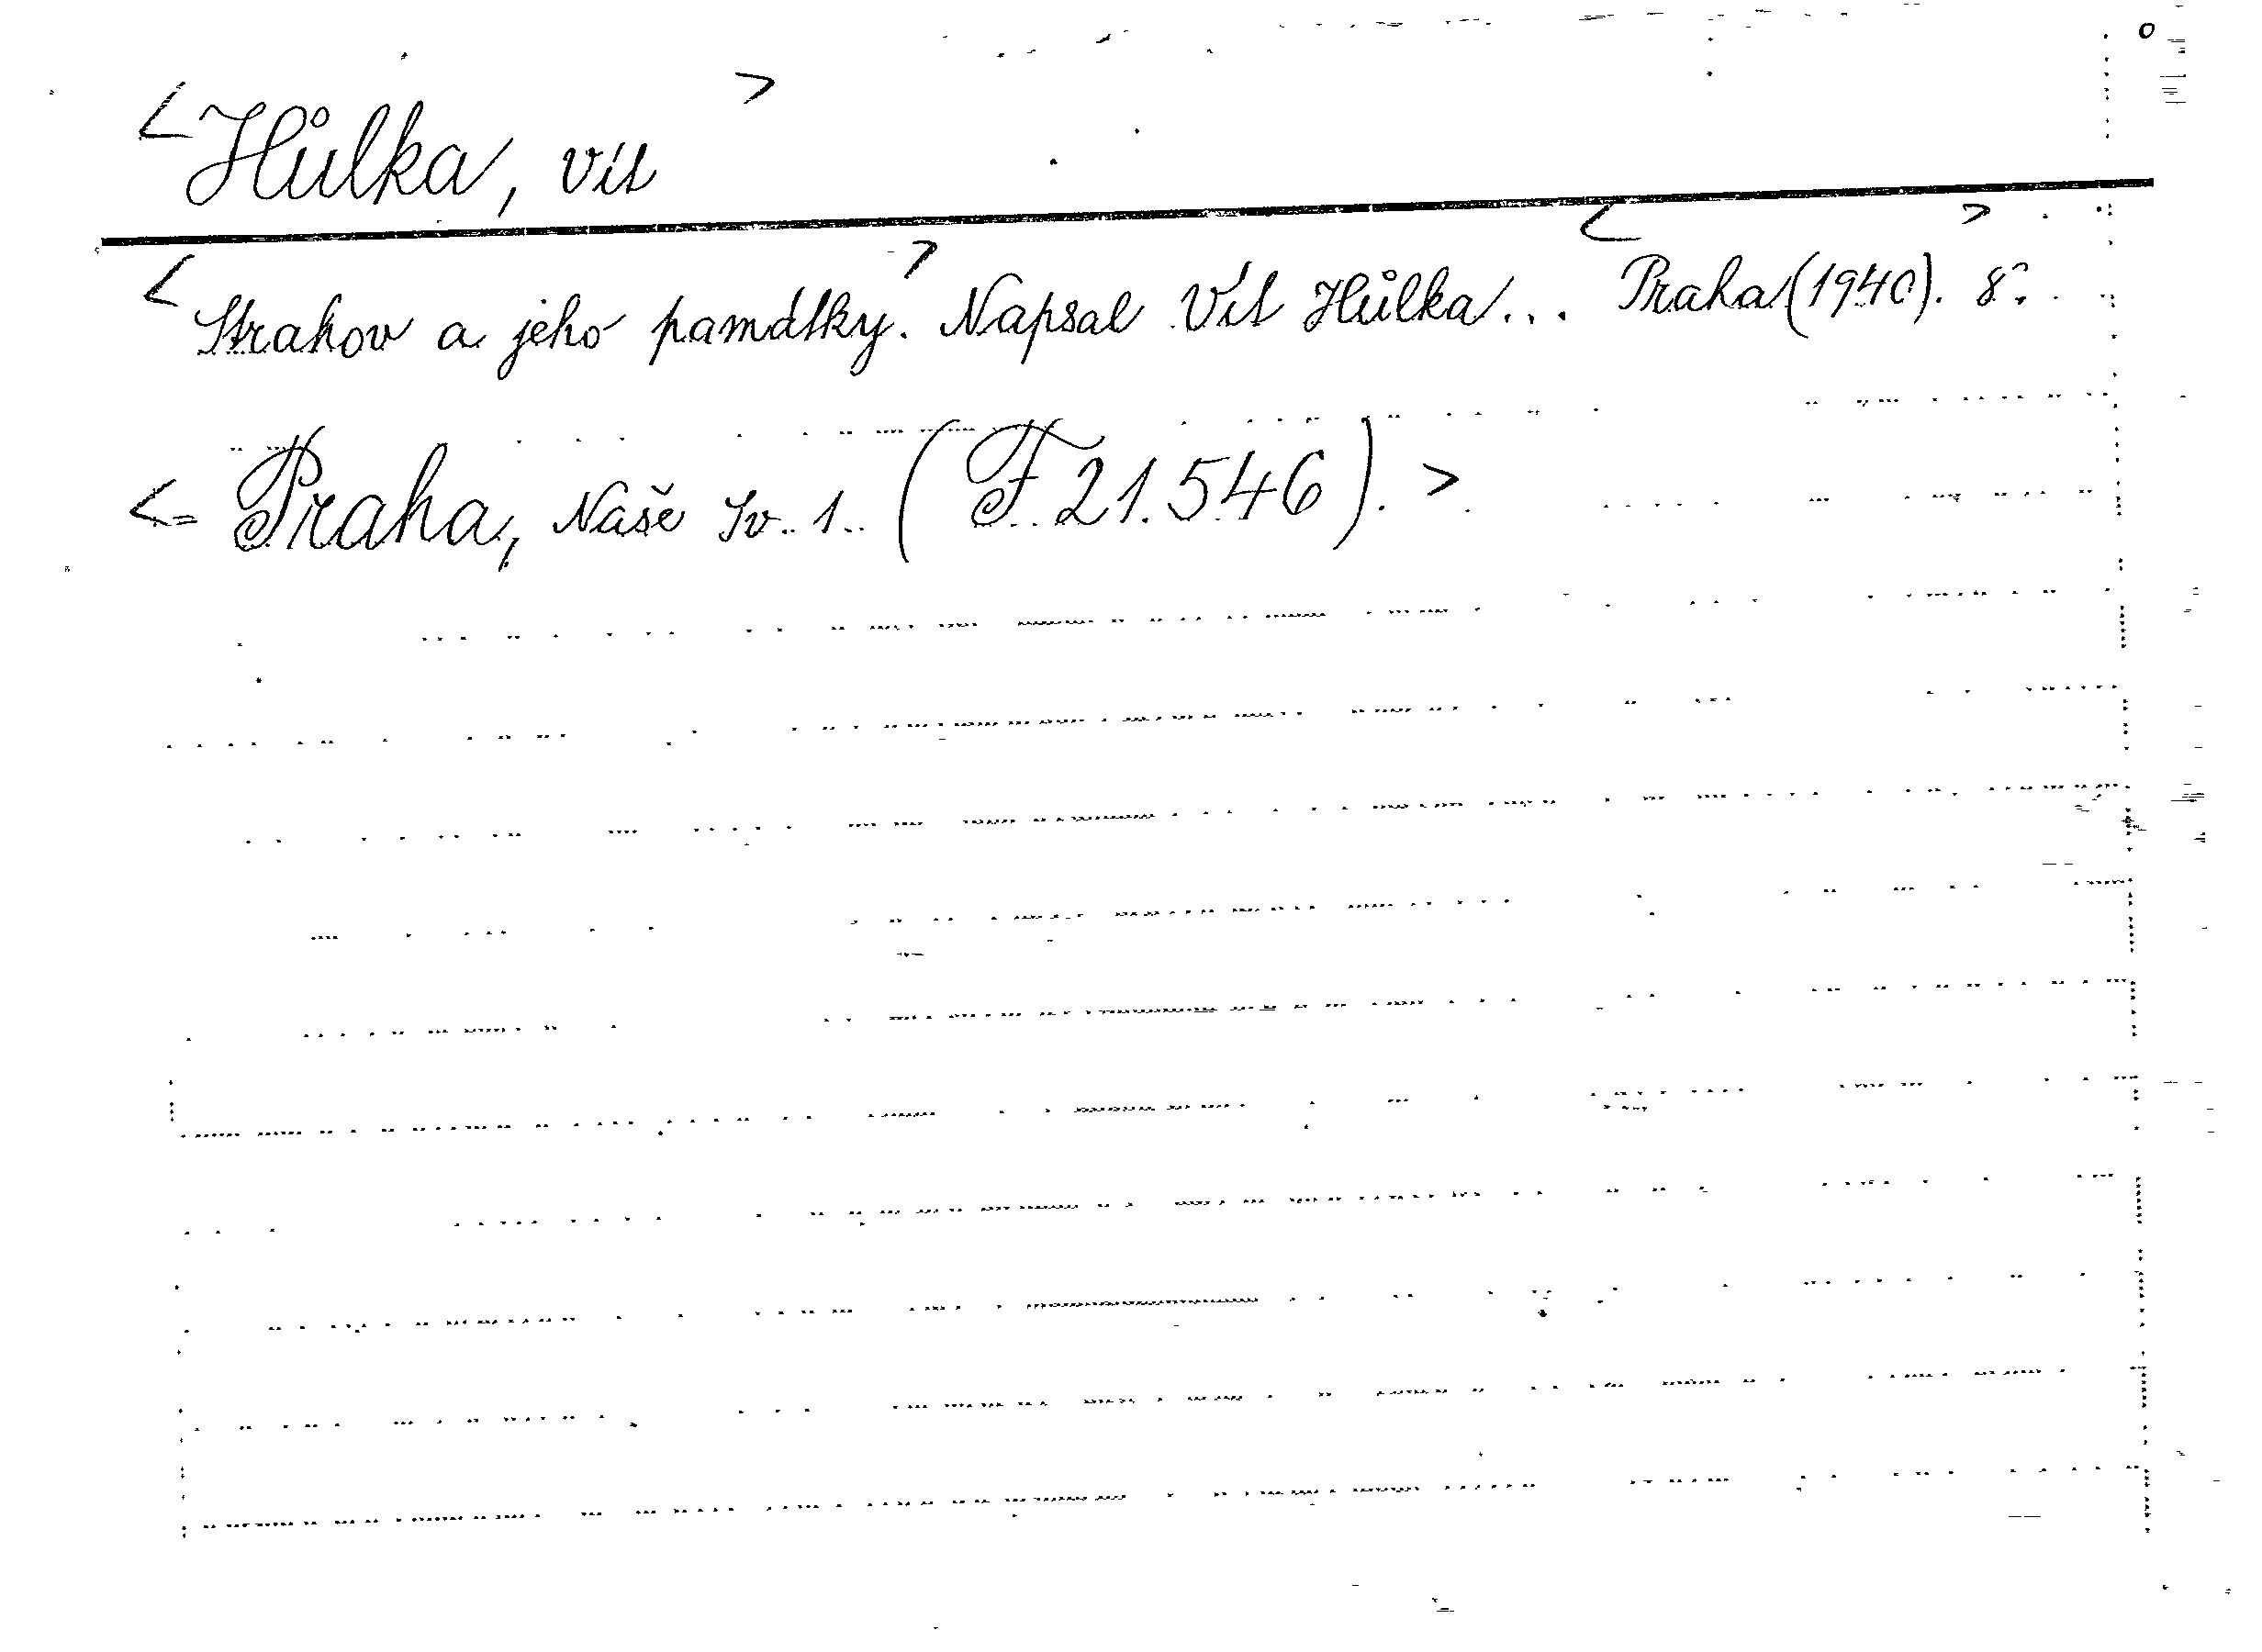 <Hůlka, Vít>
<Strahov a jeho památky.> Napsal Vít Hůlka... <Praha (1940). 8°.>
<= Praha, Naše Sv. 1. (F 21.546).>